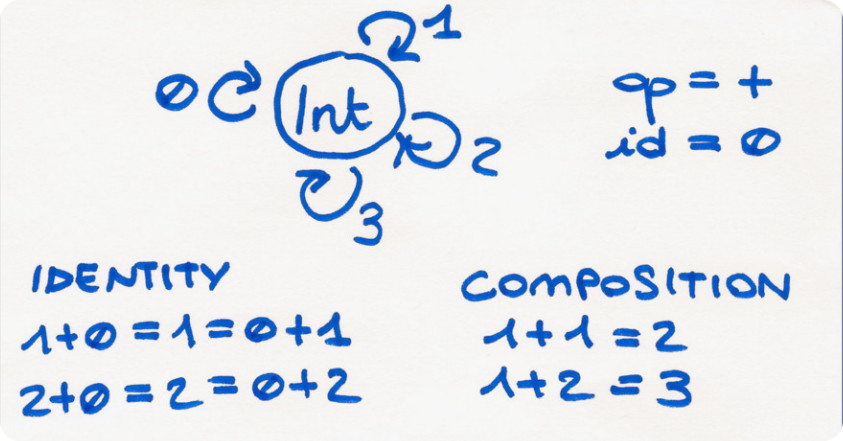 1
0
Int
2
3
op = +
id = 0
IDENTITY
1+0=1=0+1
2+0=2=0+2
COMPOSITION
1+1=2
1+2=3